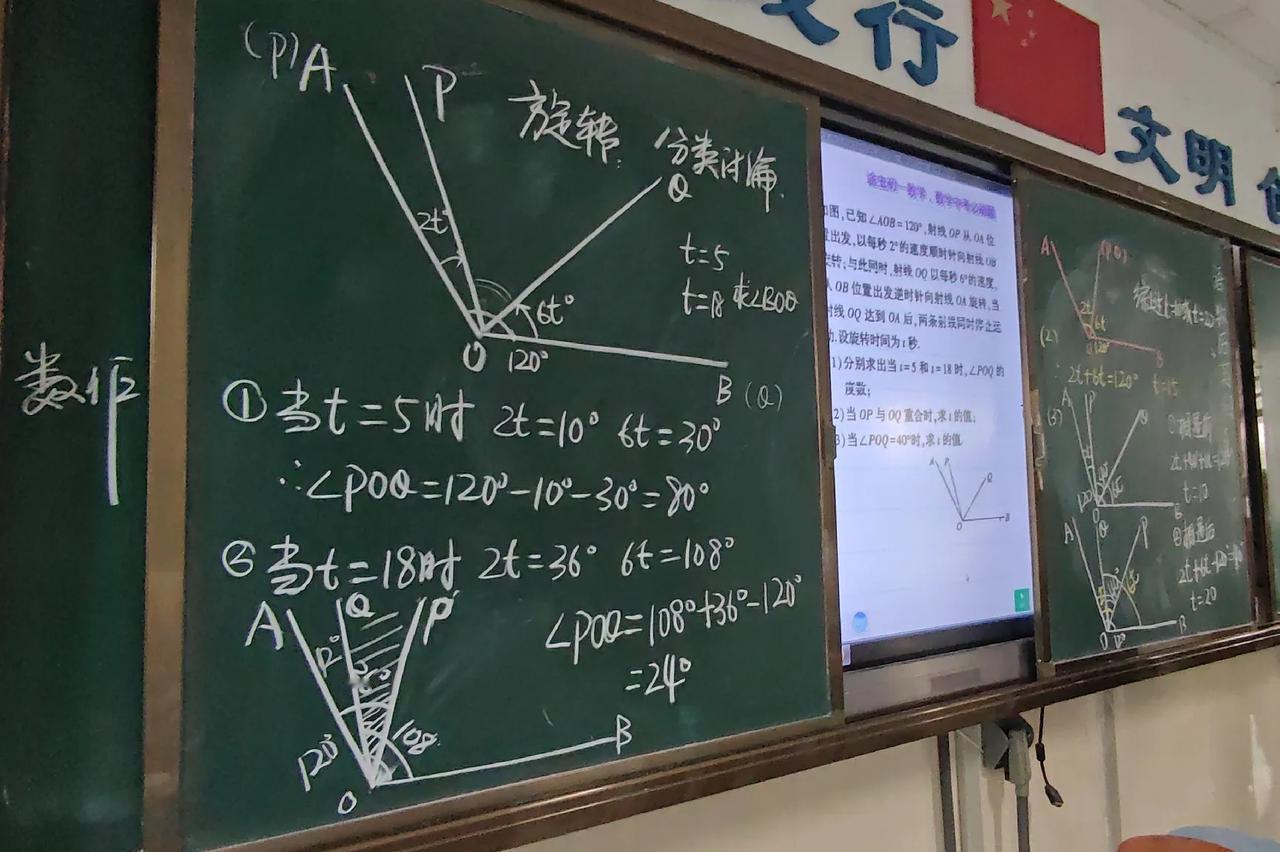 行
文明
数作
(P) A
P
旋转. 分类讨论.
Q
2t°
t=5
t=18 求∠BOQ
6t°
O 120°
B (Q)
①当t=5时 2t=10° 6t=30°
∴∠POQ=120°-10°-30°=80°
②当t=18时 2t=36° 6t=108°
A Q P
∠POQ=108°+36°-120°
=24°
12°
120°
108°
O
B
初一数学、数学中考必刷题
如图,已知∠AOB=120°,射线OP从OA位
置出发,以每秒2°的速度顺时针向射线OB
旋转;与此同时,射线OQ以每秒6°的速度,
从OB位置出发逆时针向射线OA旋转,当
射线OQ达到OA后,两条射线同时停止运
动.设旋转时间为t秒.
(1)分别求出当t=5和t=18时,∠POQ的
度数;
(2)当OP与OQ重合时,求t的值;
(3)当∠POQ=40°时,求t的值.
A P
Q
O B
A (PQ)
2t 6t
(2)
120°
B
2t+6t=120° t=15
(3)
A P Q
①相遇前
t=10
O B
A Q P
②相遇后
t=20
O B